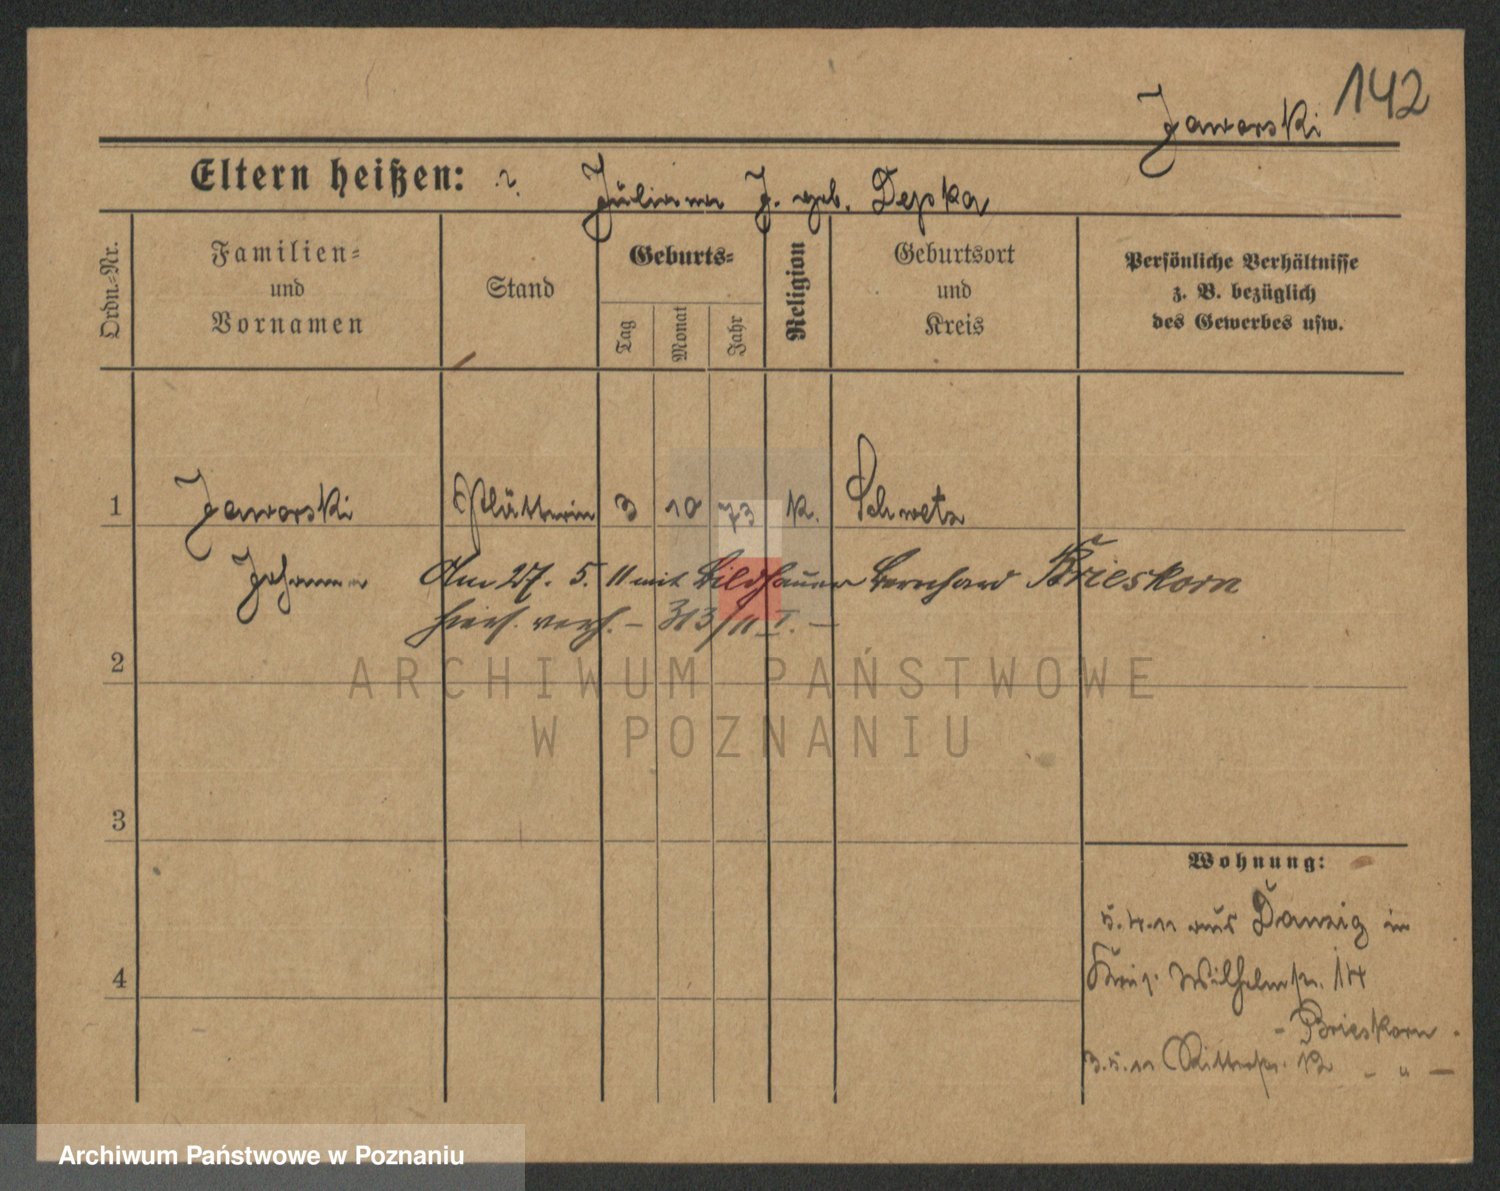 142
Jaworski
Eltern heißen: ?. Julianna J. geb. Depka
Ordn.-Nr.
Familien-
und
Vornamen
Stand
Geburts-
Tag
Monat
Jahr
Religion
Geburtsort
und
Kreis
Persönliche Verhältnisse
z. B. bezüglich
des Gewerbes usw.
1 Jaworski Plätterin 3 10 73 k. Schwetz
Johanna Am 27. 5. 11 mit Bildhauer Bernhard Brieskorn
hierh. verh. – 313/11 I. –
2
3
4
Wohnung:
5.4.11 aus Danzig in
Wilhelmstr. 14
- Brieskorn -
3.5.11 Ritterstr. 12 - " -
ARCHIWUM PAŃSTWOWE
W POZNANIU
Archiwum Państwowe w Poznaniu